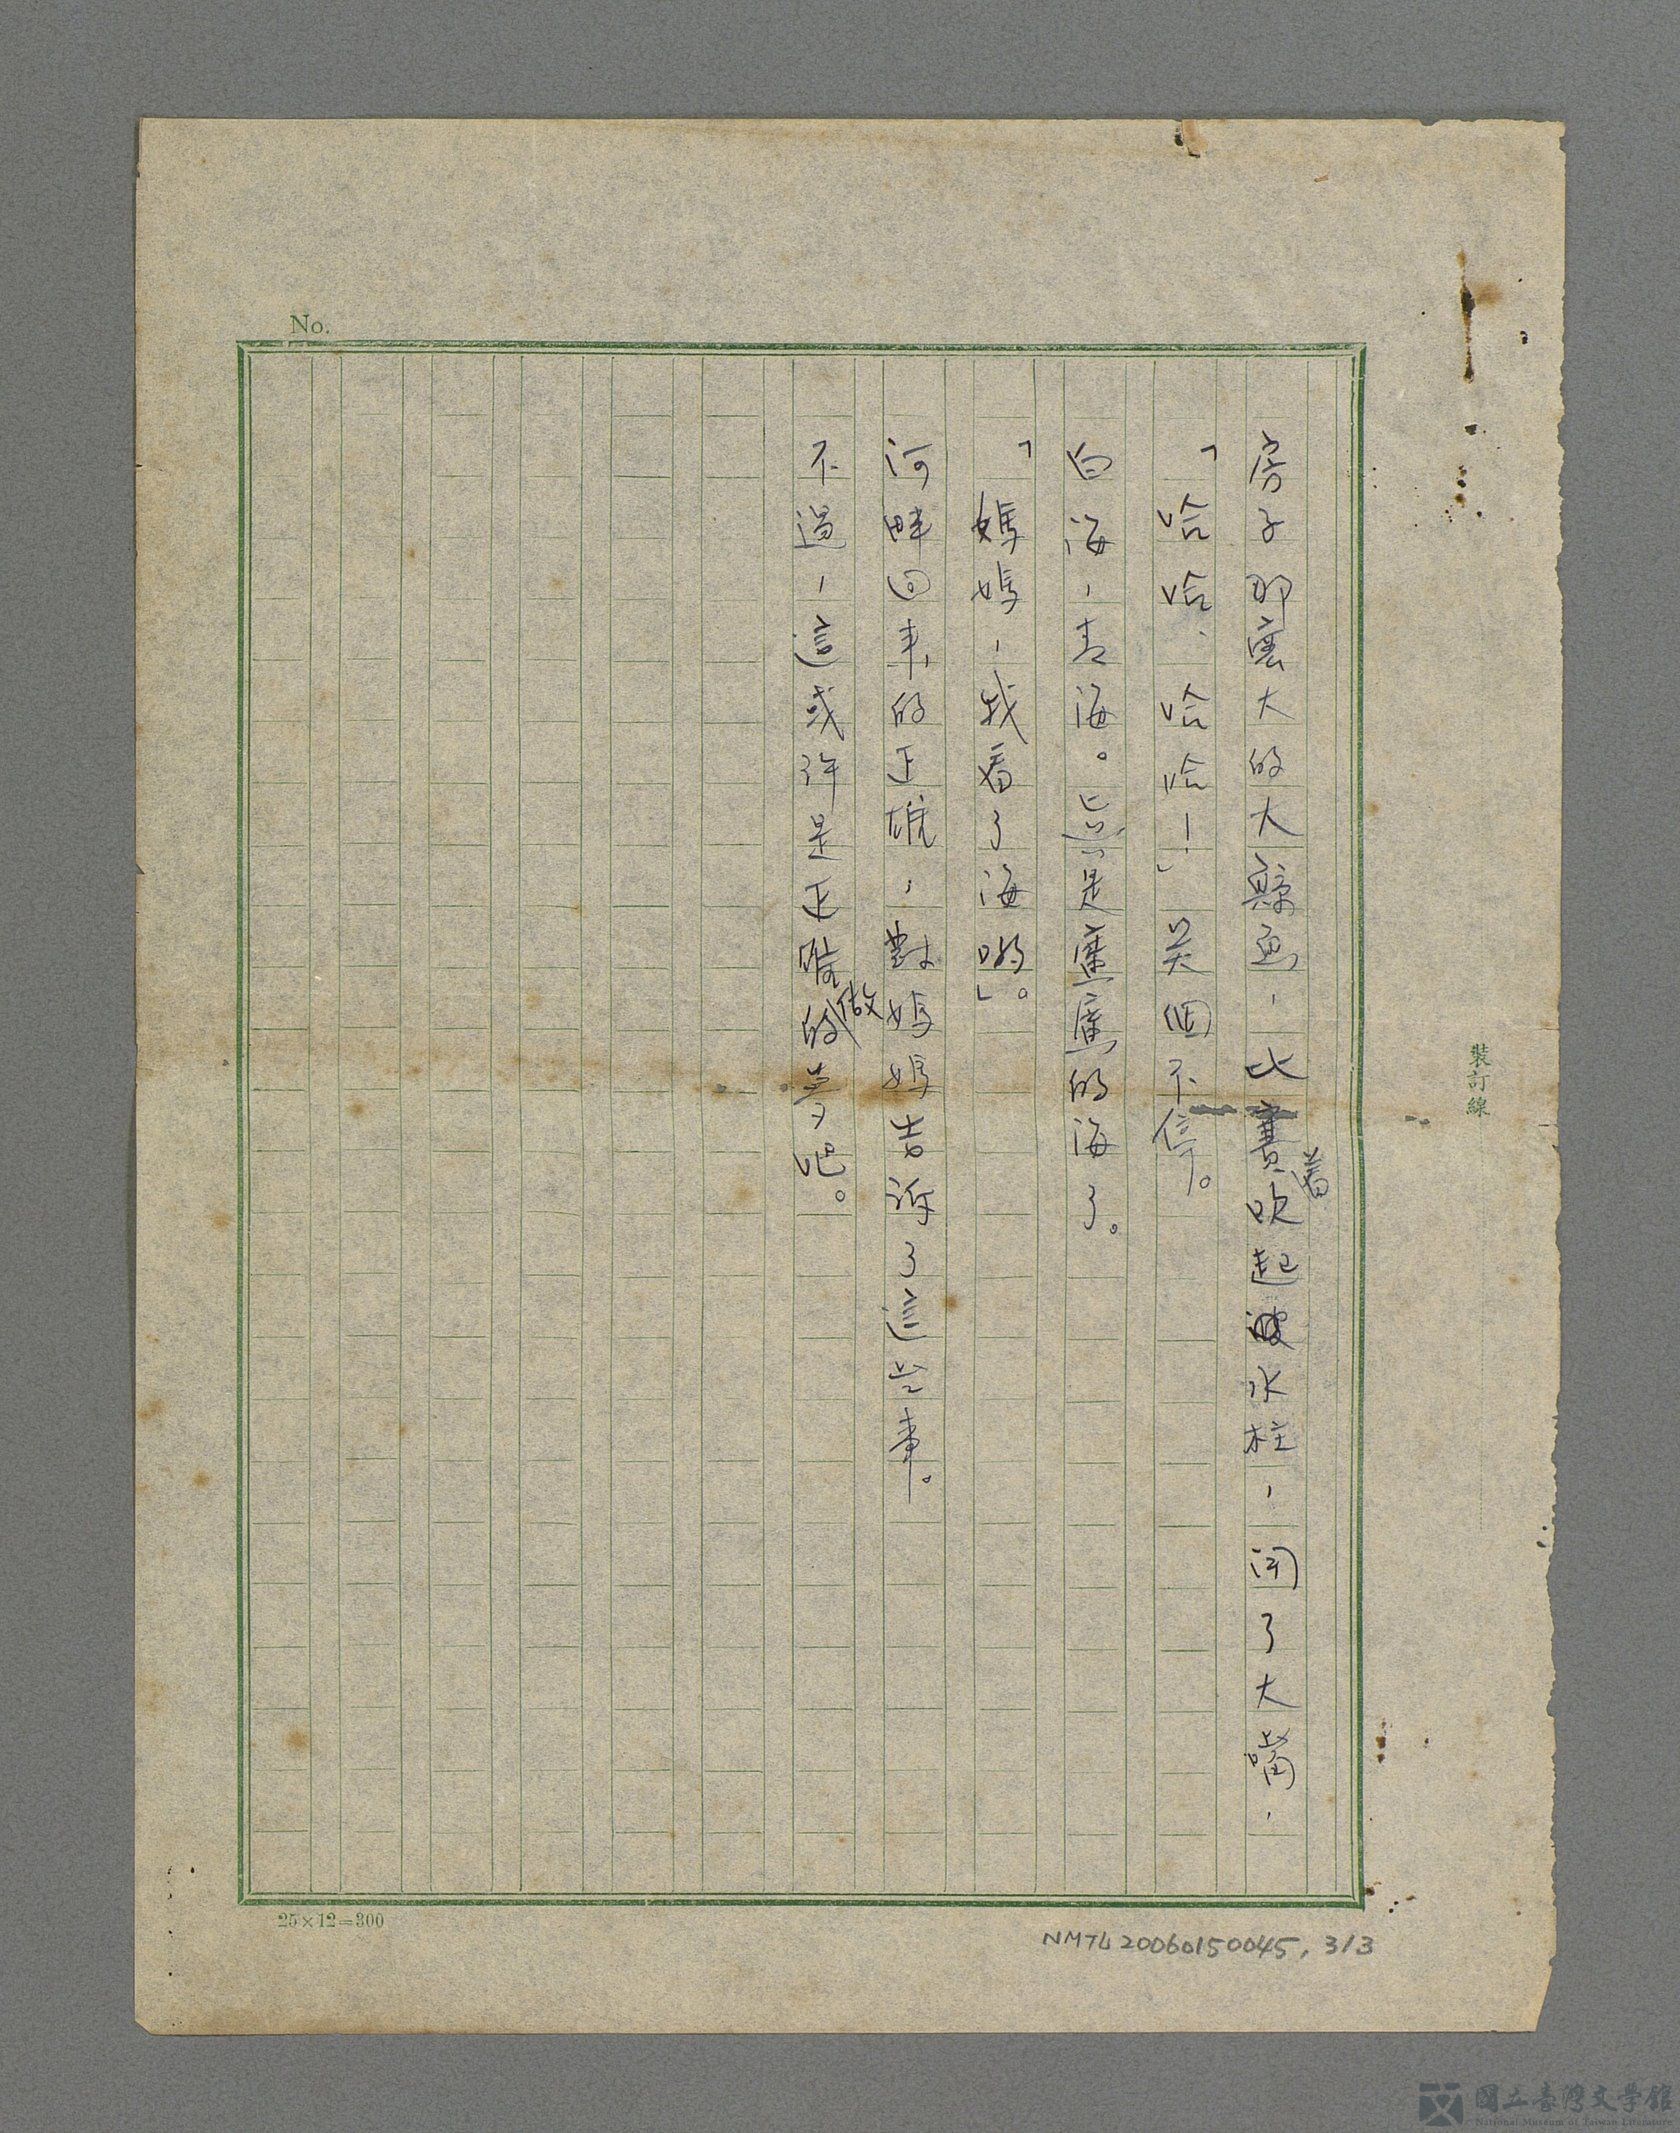 No.
裝訂線
房子那麼大的大鯨魚，比賽着吹起水柱，開了大嘴，
「哈哈、哈哈！」笑個不停。
白海，青海。真是廣廣的海了。
「媽媽，我看了海喲」。
河畔回來的正雄，對媽媽告訴了這些事。
不過，這或許是正雄做的夢吧。
25×12=300
NMTL20060150045, 3/3
國立臺灣文學館
National Museum of Taiwan Literature